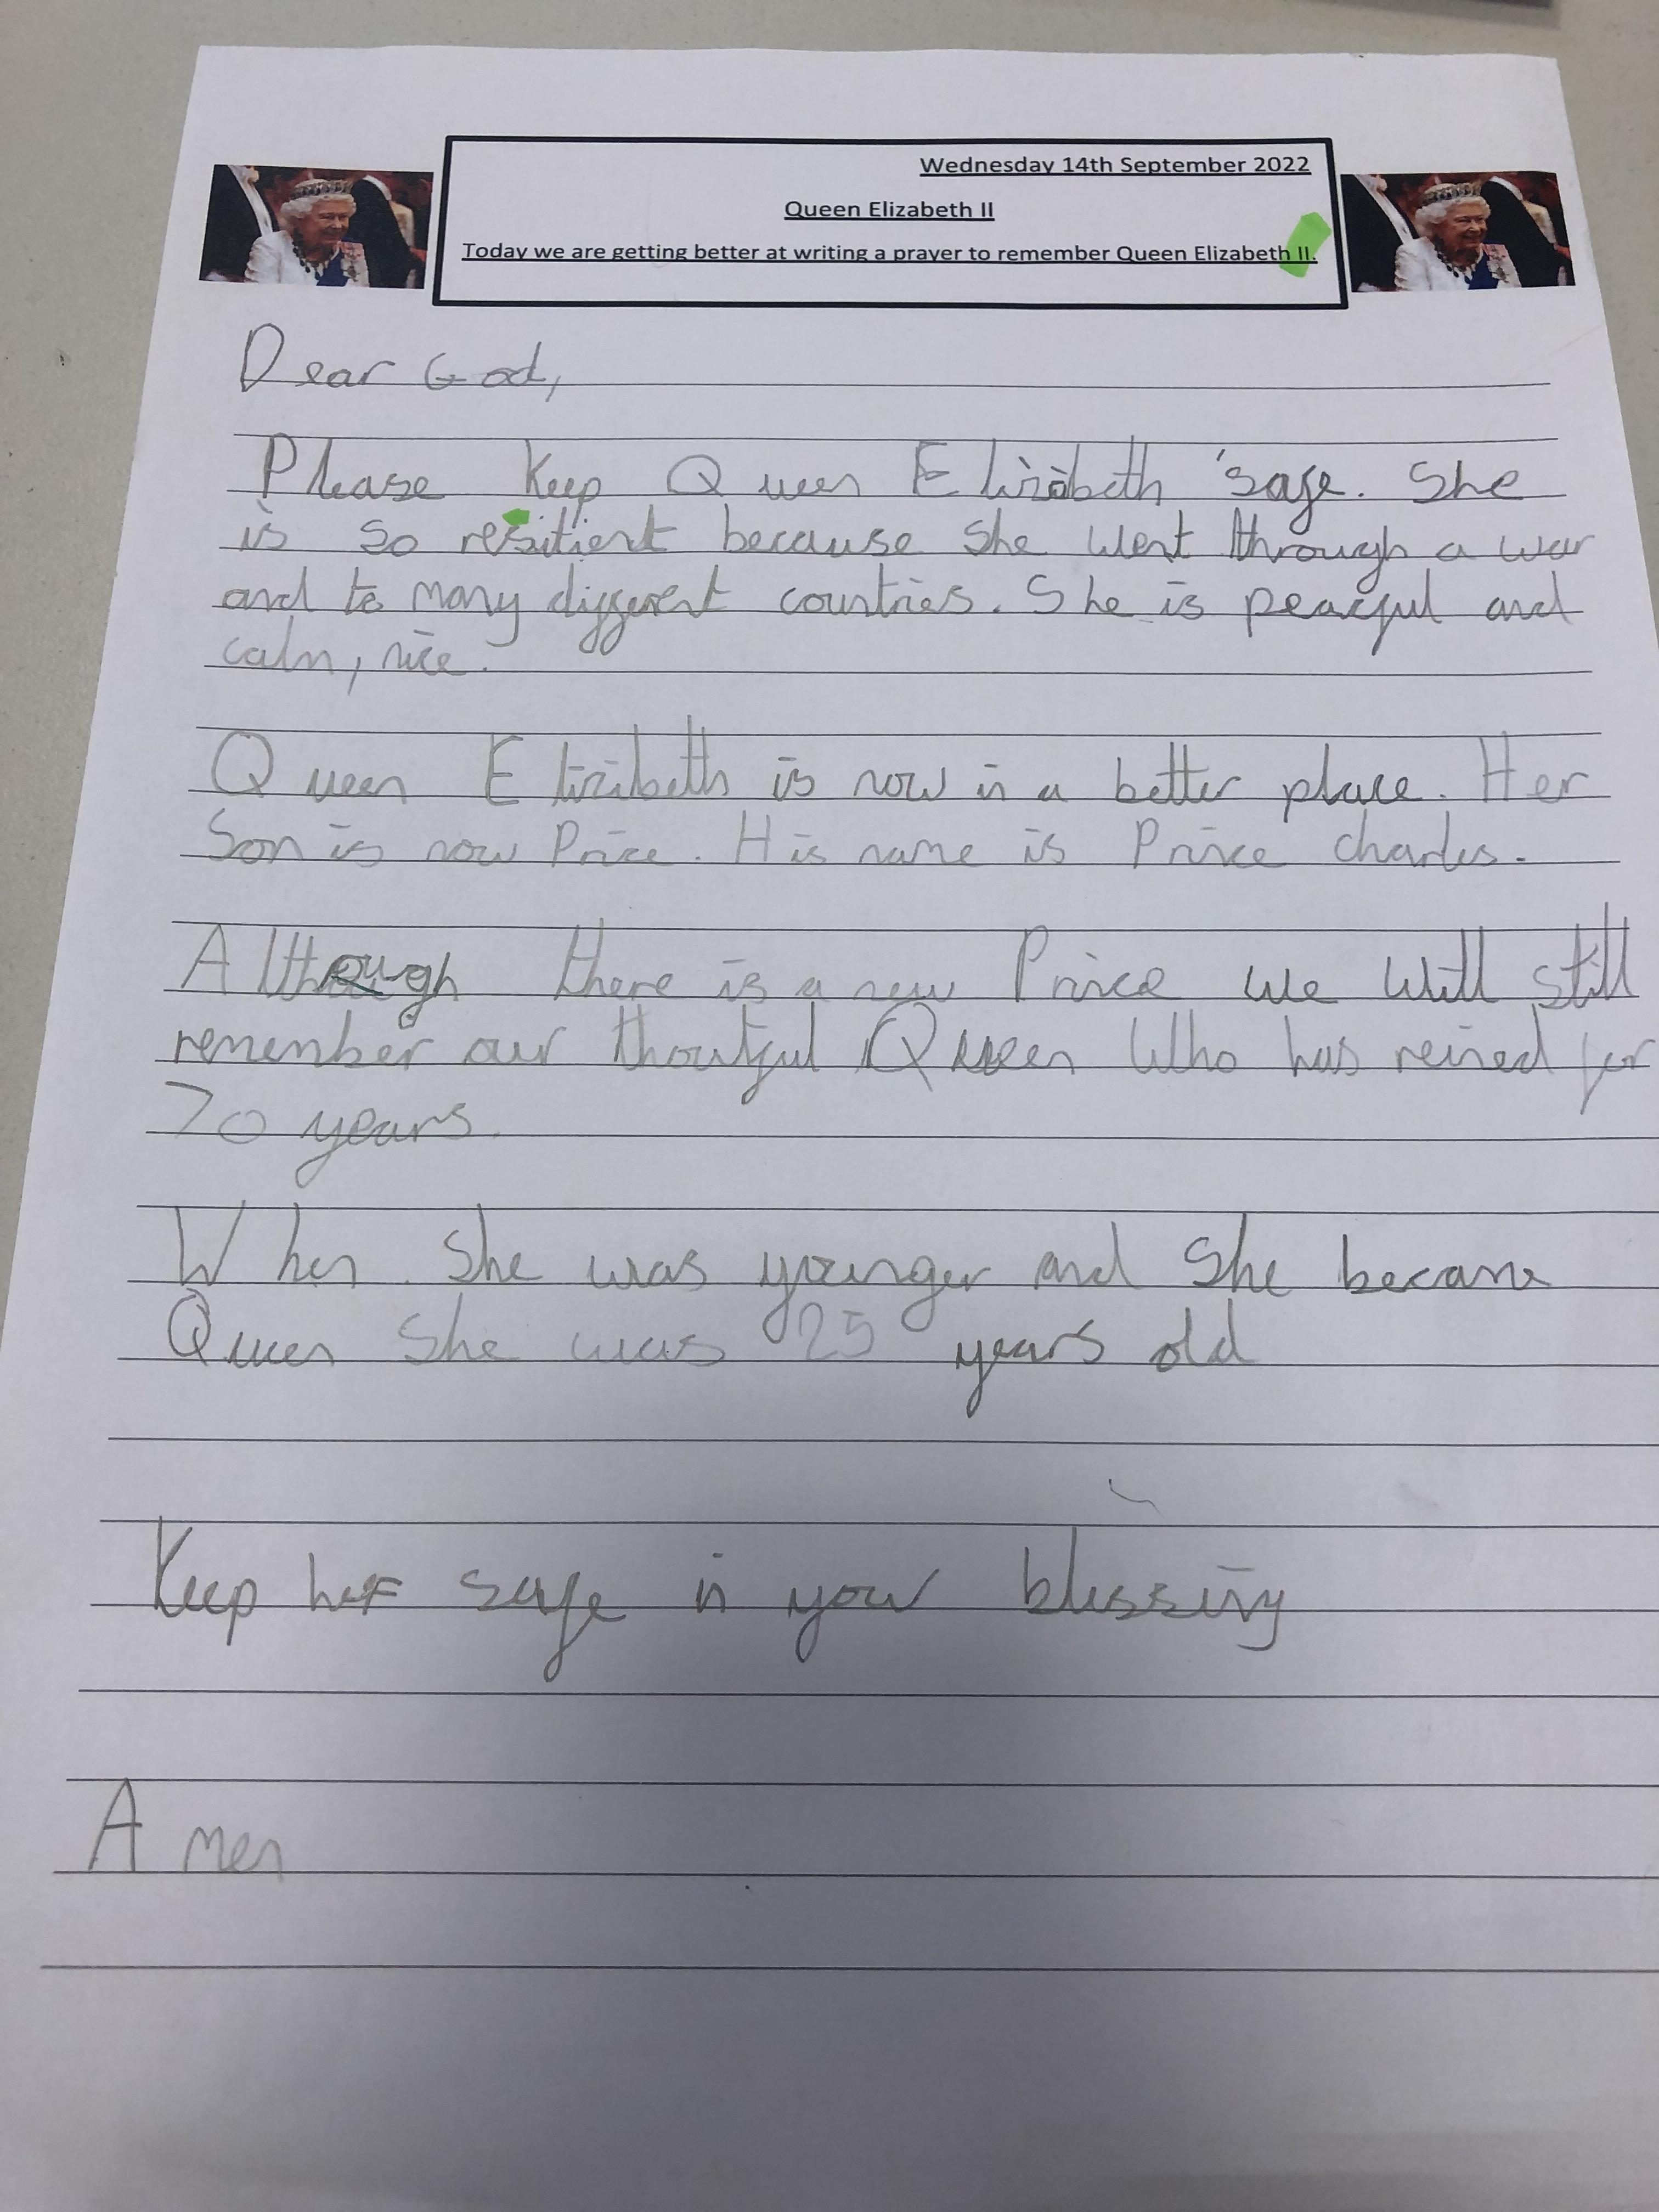 Wednesday 14th September 2022
Queen Elizabeth II
Today we are getting better at writing a prayer to remember Queen Elizabeth II.
Dear God,
Please Keep Queen Elizibeth safe. She
is so resitient because she went through a war
and to many different countries. She is peacful and
calm, nice.
Queen Elizibeth is now in a better place. Her
Son is now Prince. His name is Prince charles.
Although there is a new Prince we will still
remember our thoutful Queen Who has reined for
70 years.
When she was younger and She became
Queen She was 25 years old
Keep her safe in your blessing
Amen